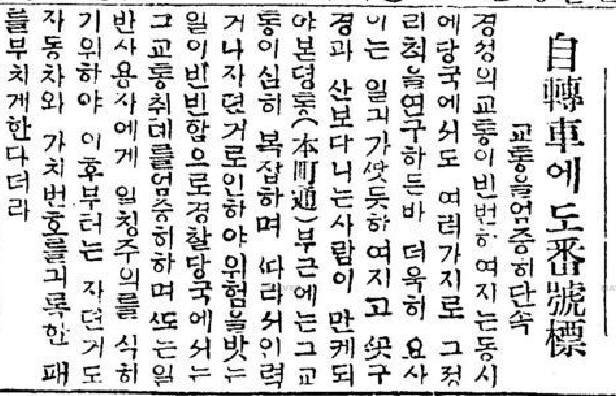 自轉車에도番號標
교통을엄중히단속
경성의교통이빈번하여지는동시
에당국에서도 여러가지로 그정
리책을연구하든바 더욱히 요사
이는 일긔가ᄯᅡᆺ듯하여지고 ᄭᅩᆺ구
경과 산보다니는사람이 만케되
야본뎡통(本町通)부근에는그교
통이심히 복잡하며 ᄯᅡ라서인력
거나자뎐거로인하야위험을밧는
일이빈빈함으로경찰당국에서는
그교통취톄를엄중히하며ᄯᅩ는일
반사용자에게 일칭주의를 식히
기위하야 이후부터는 자뎐거도
자동차와 가치번호를긔록한 패
를부치게한다더라